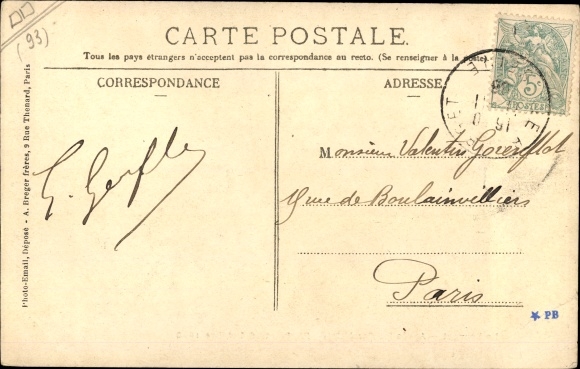 (93)
CARTE POSTALE.
Tous les pays étrangers n'acceptent pas la correspondance au recto. (Se renseigner à la poste).
CORRESPONDANCE
ADRESSE
5c
POSTES
Monsieur Valentin
rue de Boulainvilliers
Paris
PB
Photo-Email, Déposé - A. Breger frères, 9 Rue Thenard, Paris